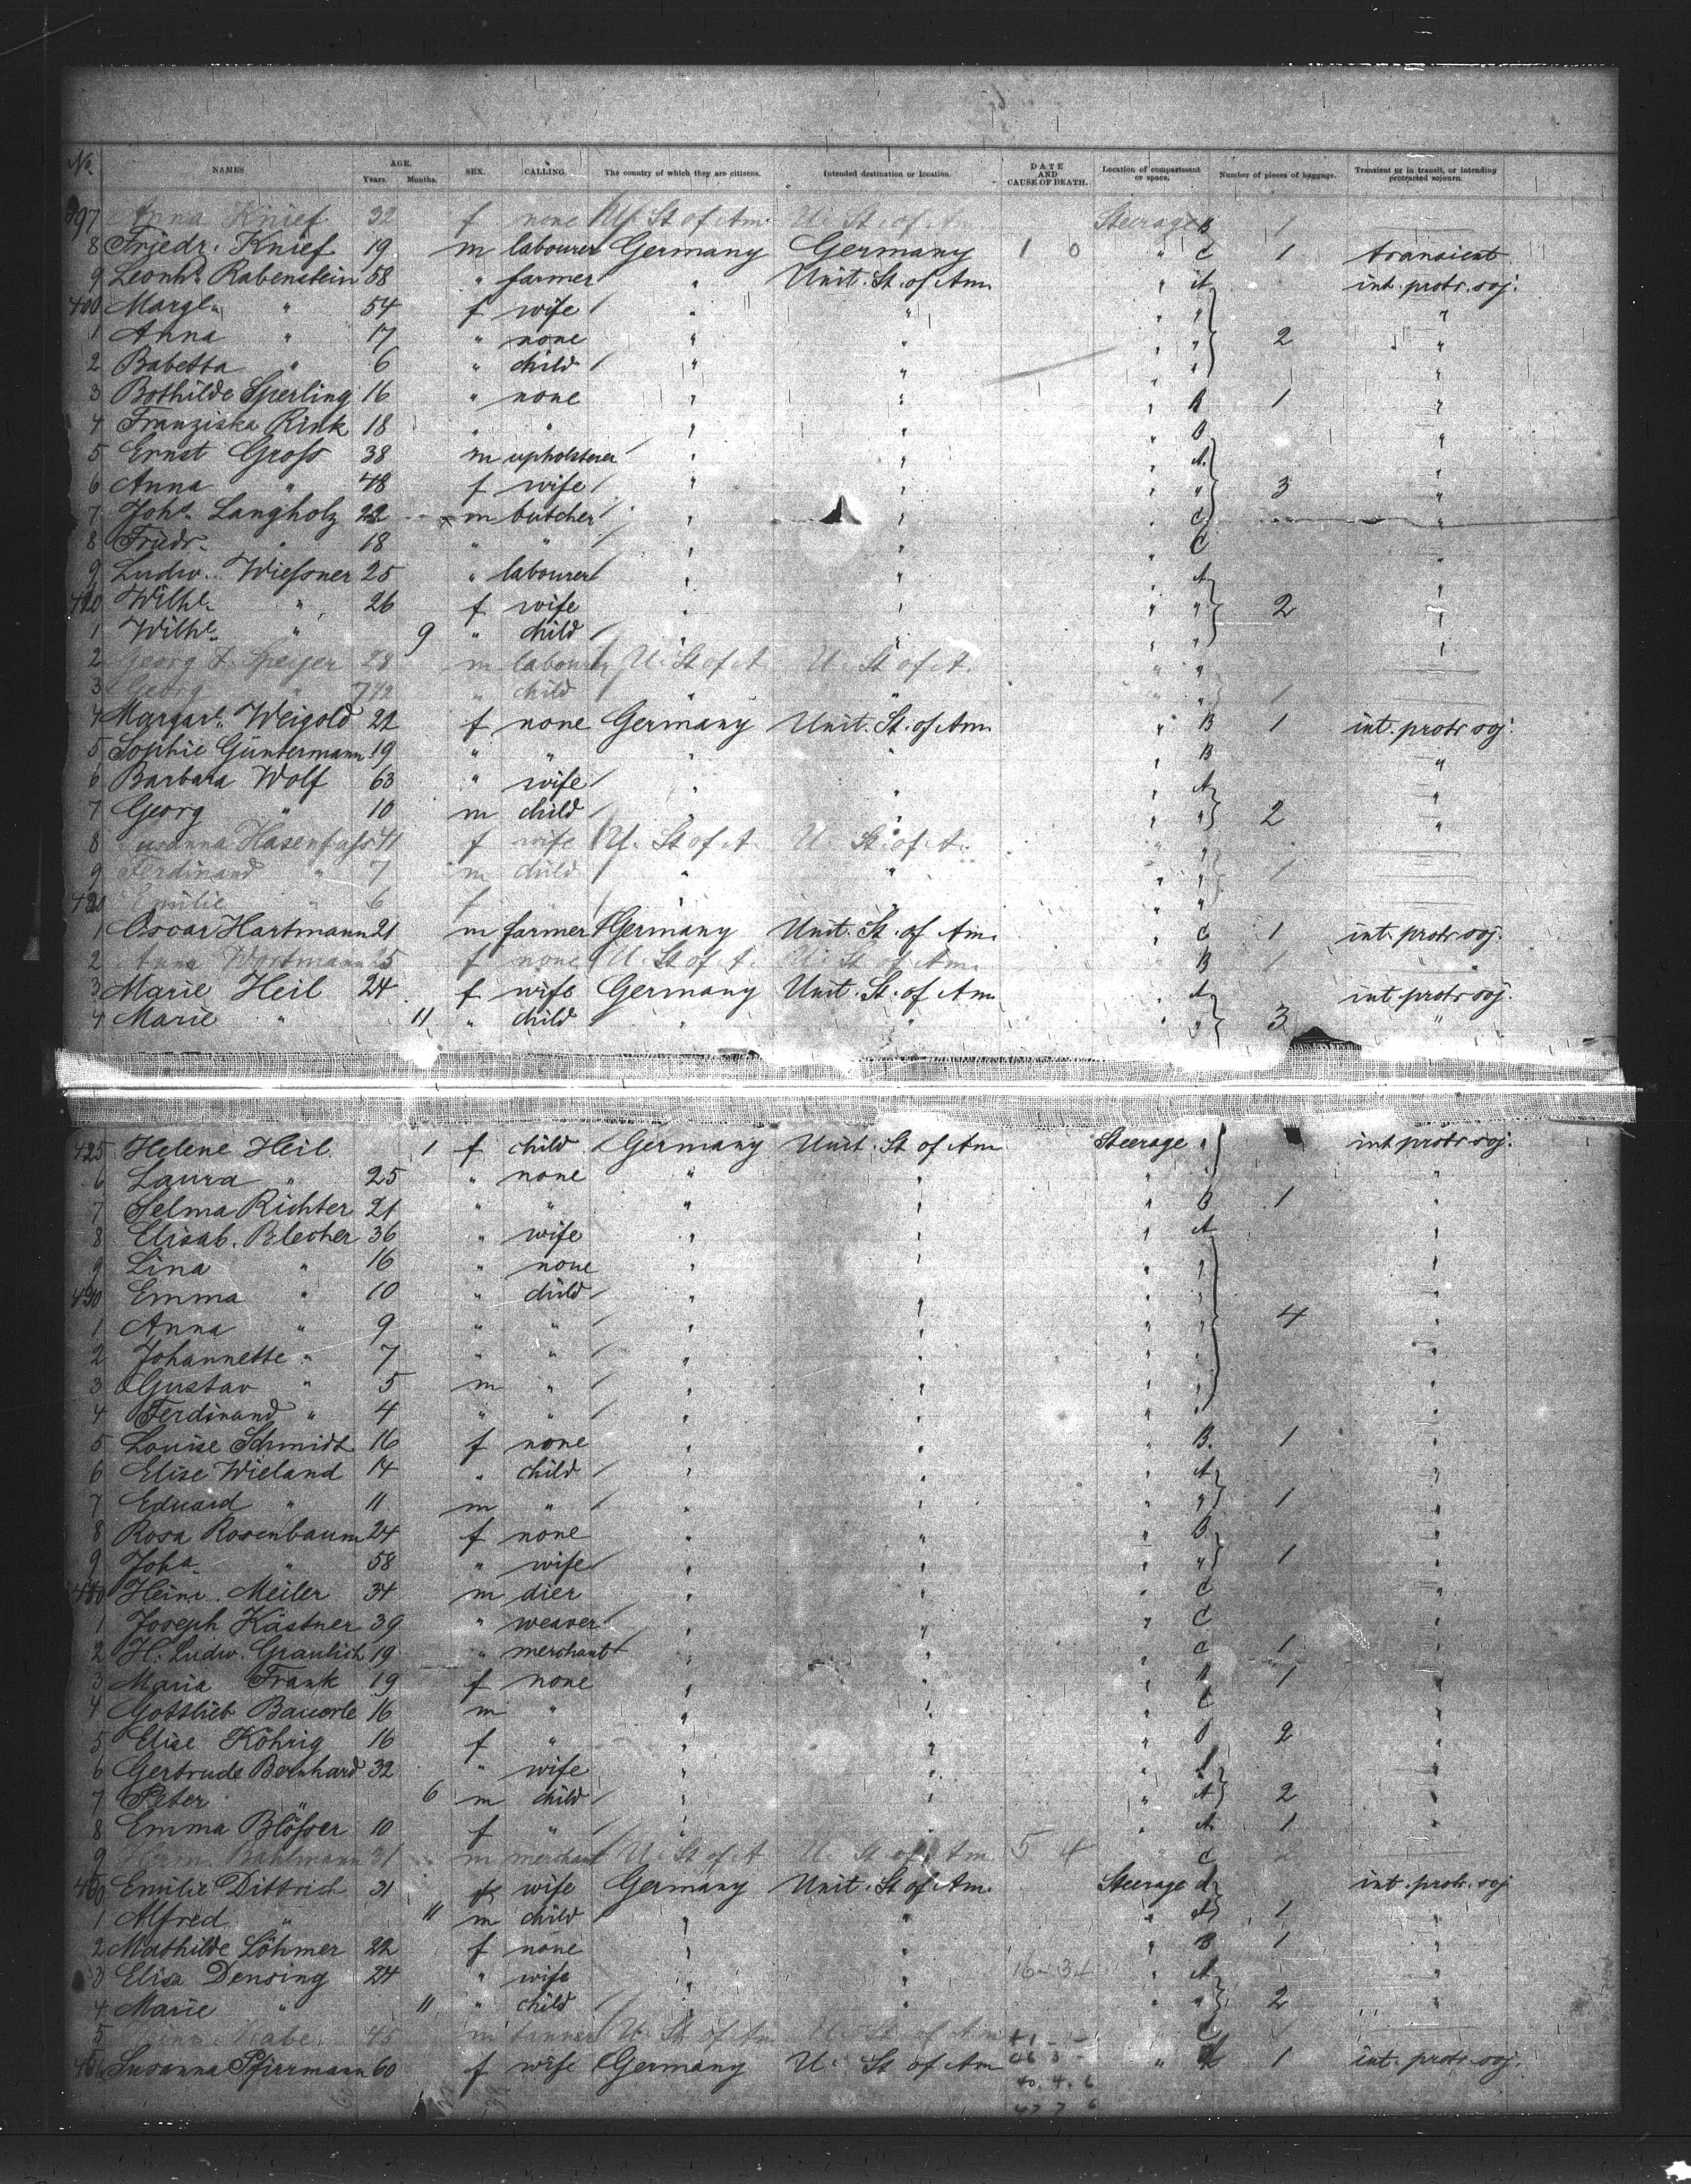 No. NAMES AGE. Years. Months. SEX. CALLING. The country of which they are citizens. Intended destination or location. DATE AND CAUSE OF DEATH. Location of compartment or space. Number of pieces of baggage. Transient or in transit, or intending protracted sojourn.
397 Anna Knief 32 f none U. St of Am. U. St. of Am. Steerage B 1
8 Friedr. Knief 19 m labourer Germany Germany 1 0 " C 1 transient
9 Leonhd. Rabenstein 58 " farmer " Unit. St. of Am. " A int. protr. soj.
400 Margt. " 54 f wife " " " " "
1 Anna " 17 " none " " " " 2 "
2 Babetta " 6 " child " " " " "
3 Bothilde Sperling 16 " none " " " B 1 "
4 Franziska Rink 18 " " " " " B "
5 Ernst Gross 38 m upholsterer " " " A. "
6 Anna " 48 f wife " " " " 3 "
7 Johs. Langholz 22 m butcher " " " C "
8 Friedr. " 18 " " " " " C "
9 Ludw. Wiessner 25 " labourer " " " A "
410 Wilhe. " 26 f wife " " " " 2 "
1 Wilhe. " 9 " child " " " " "
2 Georg F. Speyer 28 m labourer U. St of A. U. St of A. " "
3 Georg " 7 1/2 " child " " " " 1
4 Margart. Weigold 22 f none Germany Unit. St. of Am. " B 1 int. protr soj.
5 Sophie Güntermann 19 " " " " " B "
6 Barbara Wolf 63 " wife " " " A "
7 Georg " 10 m child " " " " 2 "
8 Susanna Hasenfuss 41 f wife U. St of A. U. St of A. " "
9 Ferdinand " 7 m child " " " " 1
420 Emilie " 6 f " " " " "
1 Oscar Hartmann 21 m farmer Germany Unit. St. of Am. " C 1 int. protr. soj.
2 Anna Wortmann f none U. St of A. U. St of Am. " B 1
3 Marie Heil 24 f wife Germany Unit. St. of Am. " A int. protr soj.
4 Marie " 11 " child " " " " 3 "
425 Helene Heil 1 f child Germany Unit. St of Am Steerage " int protr soj.
6 Laura " 25 " none " " " " "
7 Selma Richter 21 " " " " " B 1 "
8 Elisab. Blecher 36 " wife " " " A "
9 Lina " 16 " none " " " " "
430 Emma " 10 " child " " " " "
1 Anna " 9 " " " " " " 4 "
2 Johannette " 7 " " " " " " "
3 Gustav " 5 m " " " " " "
4 Ferdinand " 4 " " " " " " "
5 Louise Schmidt 16 f none " " " B. 1 "
6 Elise Wieland 14 " child " " " A "
7 Eduard " 11 m " " " " " 1 "
8 Rosa Rosenbaum 24 f none " " " B "
9 Joha. " 58 " wife " " " " 1 "
440 Heinr. Meiler 34 m dier " " " C "
1 Joseph Kästner 39 " weaver " " " C "
2 H. Ludw. Graulich 19 " merchant " " " C 1 "
3 Maria Frank 19 f none " " " B 1 "
4 Gottlieb Bauerle 16 m " " " " C "
5 Elise Köhrig 16 f " " " " B 2 "
6 Gertrude Bernhard 32 " wife " " " A "
7 Peter " 6 m child " " " A 2 "
8 Emma Blösser 10 f " " " " A 1 "
9 Herm. Bahlmann 31 m merchant U. St of A U. St of Am 5 4 " C
450 Emilie Dittrich 31 f wife Germany Unit. St of Am. Steerage A int. protr. soj
1 Alfred " 11 m child " " " A 1 "
2 Mathilde Löhmer 22 f none " " " B 1 "
3 Elisa Densing 24 " wife " " 16-34 " A "
4 Marie " 11 " child " " " " 2 "
5 45 m tanner U. St of Am U. St of Am " C
456 Susanna Pfirrmann 60 f wife Germany U. St of Am " A 1 int. protr soj.